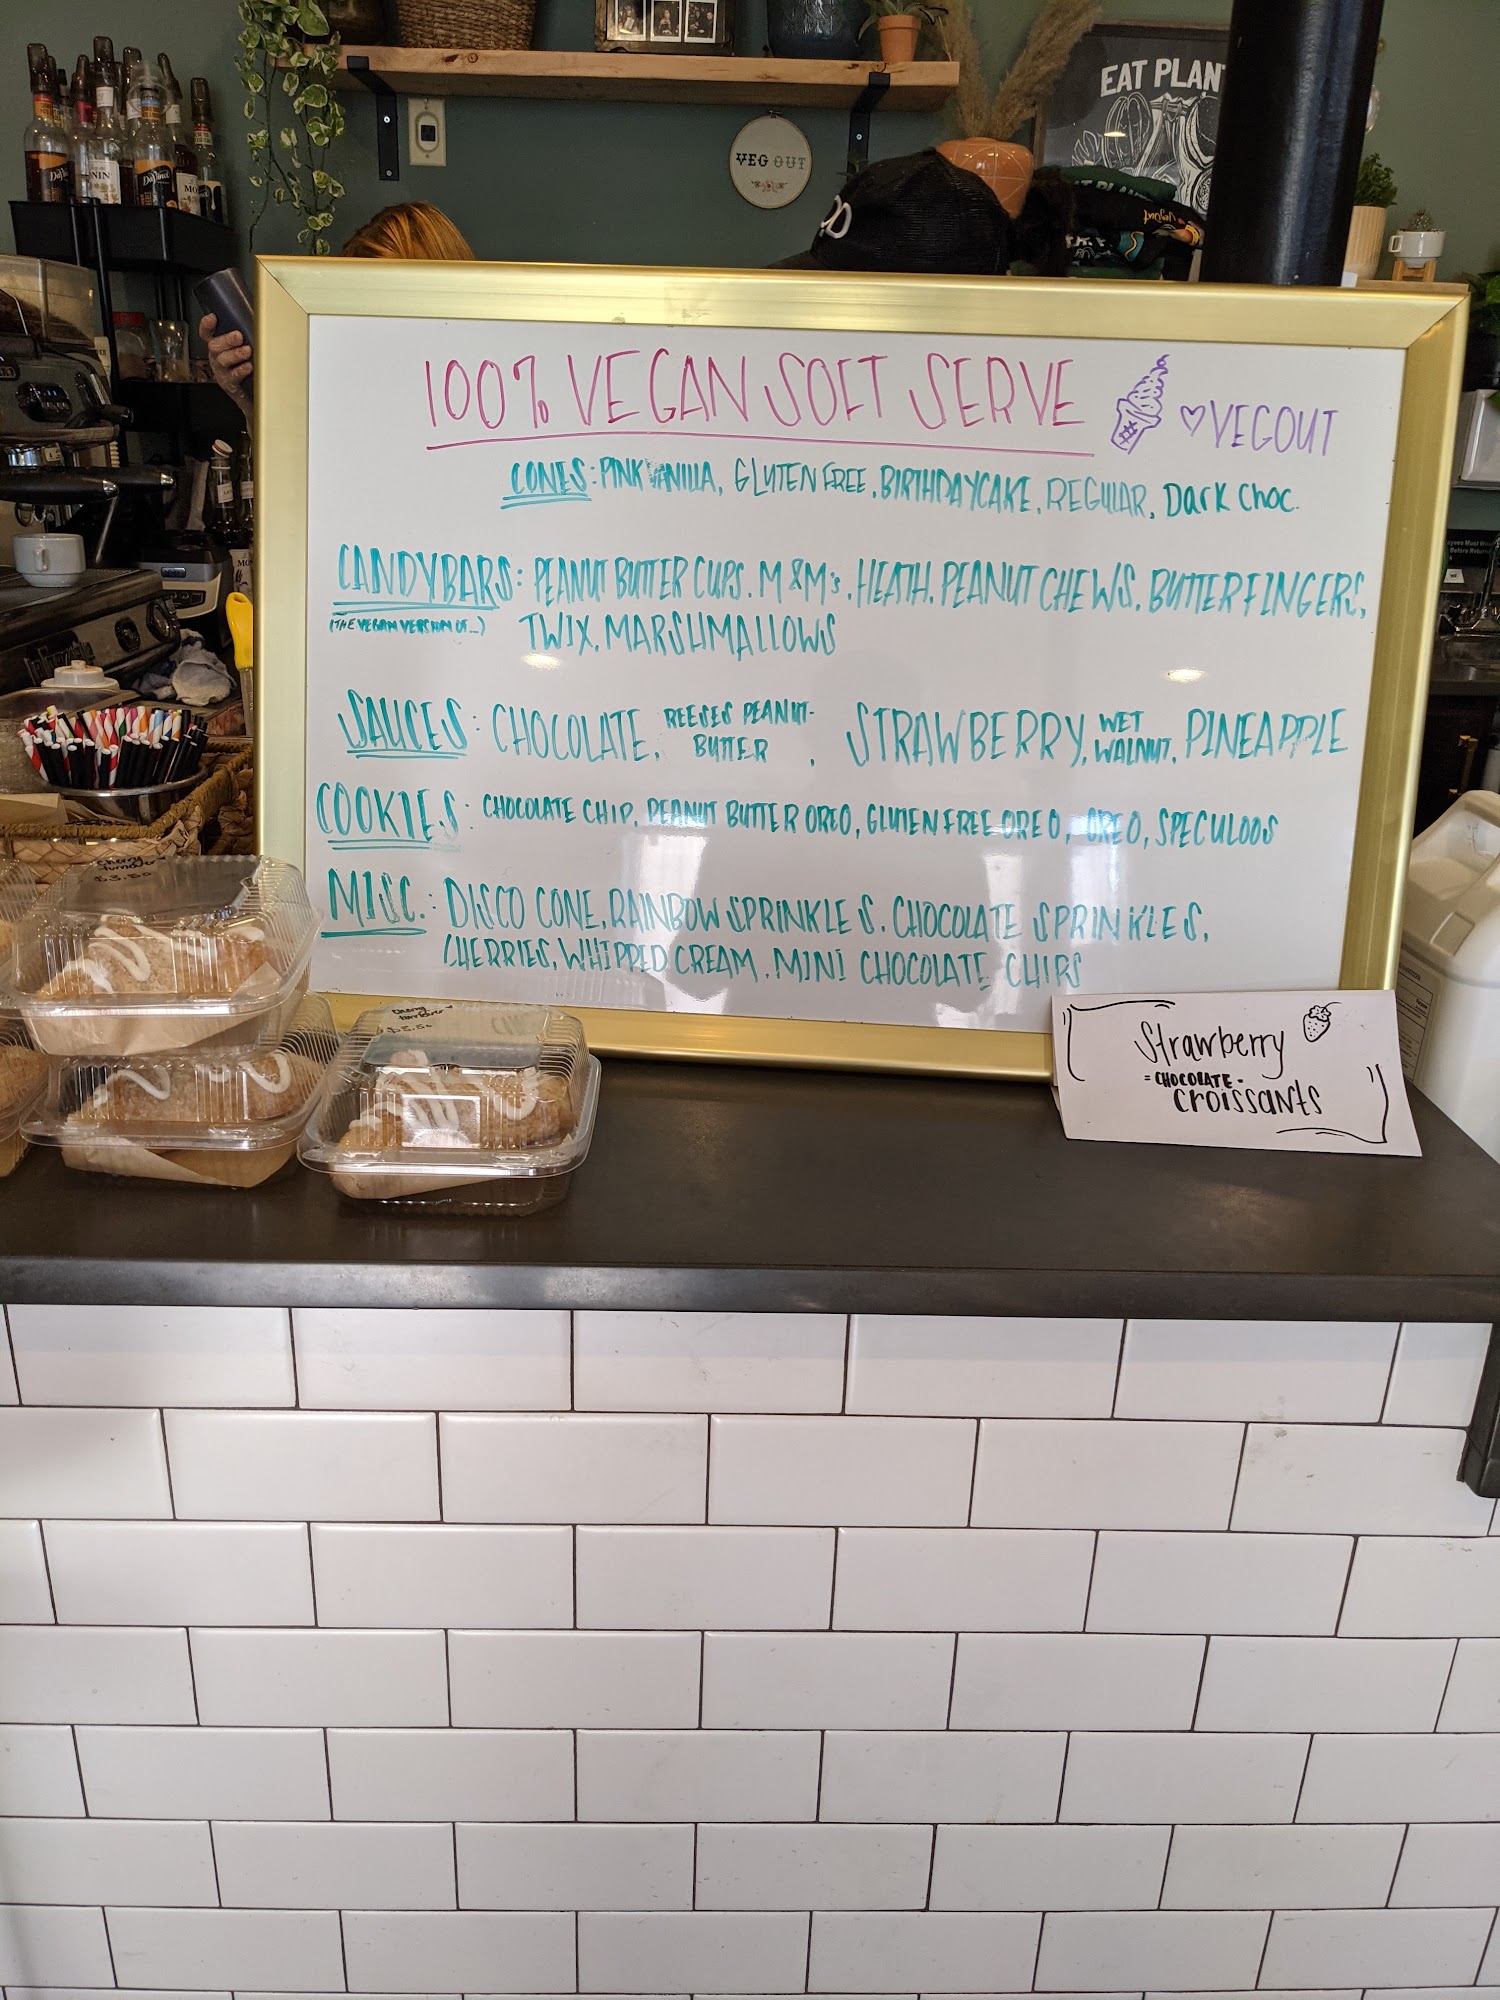 EAT PLAN
VEG OUT
DaVinci
NIN
DaVinci
MO
100% VEGAN SOFT SERVE
♡VEGOUT
CONES: PINK VANILLA, GLUTEN FREE, BIRTHDAY CAKE, REGULAR, Dark Choc.
CANDYBARS: PEANUT BUTTER CUPS, M&M's, HEATH, PEANUT CHEWS, BUTTERFINGERS,
(THE VEGAN VERSION OF...) TWIX, MARSHMALLOWS
SAUCES: CHOCOLATE, REESES PEANUT-
BUTTER, STRAWBERRY, WET
WALNUT, PINEAPPLE
COOKIES: CHOCOLATE CHIP, PEANUT BUTTER OREO, GLUTEN FREE OREO, OREO, SPECULOOS
MISC.: DISCO CONE, RAINBOW SPRINKLES, CHOCOLATE SPRINKLES,
CHERRIES, WHIPPED CREAM, MINI CHOCOLATE CHIPS
Cherry
turnover
$3.50
Cherry
turnover
$3.50
Strawberry
=CHOCOLATE-
croissants